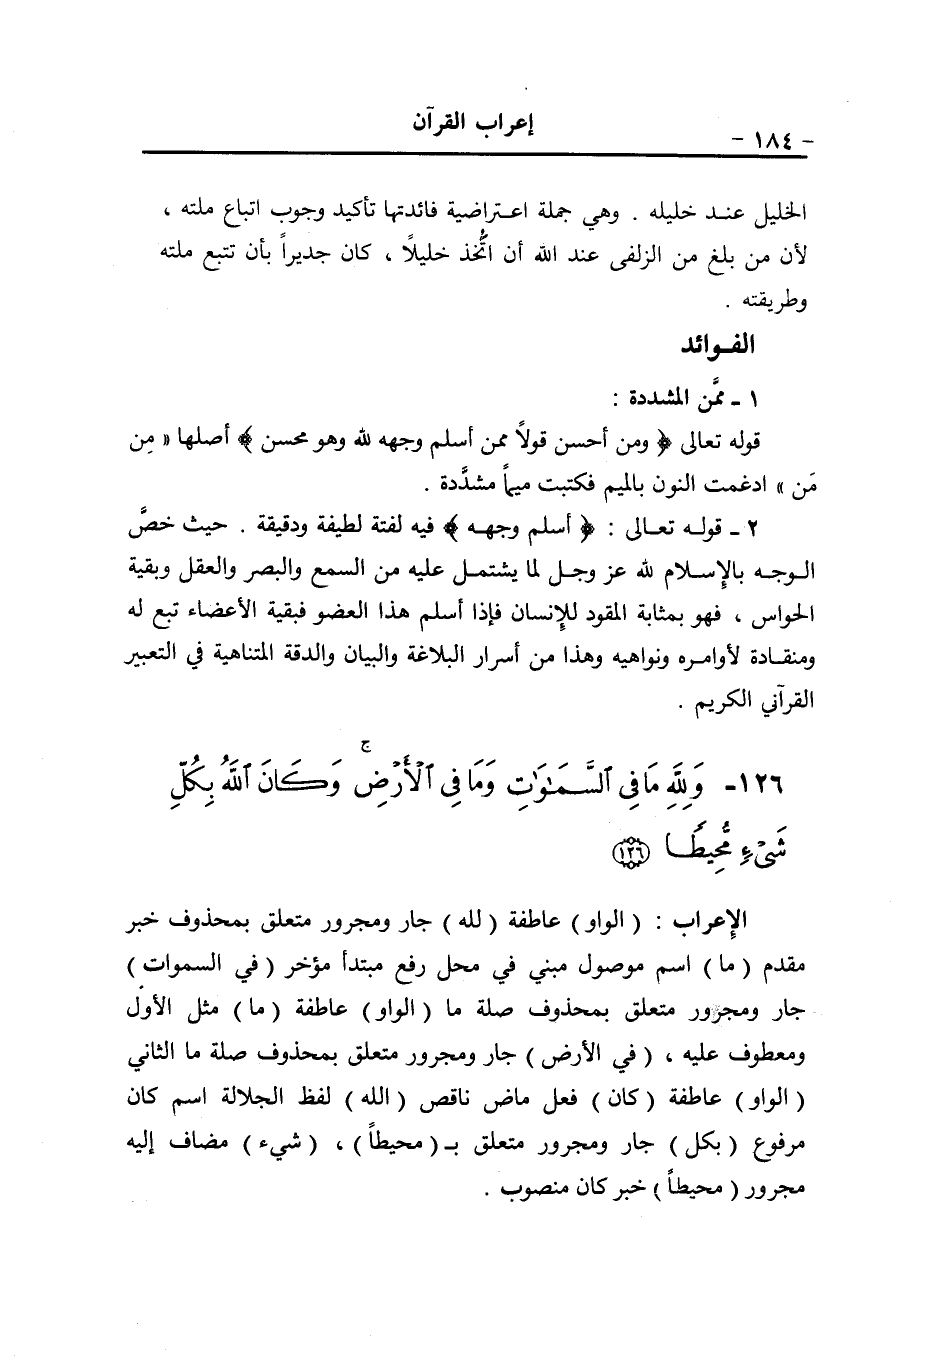 إعراب القرآن
- ١٨٤ -
الخليل عند خليله . وهي جملة اعتراضية فائدتها تأكيد وجوب اتباع ملته ،
لأن من بلغ من الزلفى عند الله أن اتُّخذ خليلاً ، كان جديراً بأن تتبع ملته
وطريقته .
الفوائد
١ - ممَّن المشددة :
قوله تعالى ﴿ ومن أحسن قولاً ممن أسلم وجهه لله وهو محسن ﴾ أصلها « مِن
مَن » ادغمت النون بالميم فكتبت ميماً مشدَّدة .
٢ - قوله تعالى : ﴿ أسلم وجهه ﴾ فيه لفتة لطيفة ودقيقة . حيث خصَّ
الوجه بالإسلام لله عز وجل لما يشتمل عليه من السمع والبصر والعقل وبقية
الحواس ، فهو بمثابة المقود للإنسان فإذا أسلم هذا العضو فبقية الأعضاء تبع له
ومنقادة لأوامره ونواهيه وهذا من أسرار البلاغة والبيان والدقة المتناهية في التعبير
القرآني الكريم .
١٢٦- وَلِلَّهِ مَا فِي ٱلسَّمَٰوَٰتِ وَمَا فِي ٱلْأَرْضِ ۚ وَكَانَ ٱللَّهُ بِكُلِّ
شَيْءٍ مُّحِيطًا ﴿١٢٦﴾
الإعراب : ( الواو ) عاطفة ( لله ) جار ومجرور متعلق بمحذوف خبر
مقدم ( ما ) اسم موصول مبني في محل رفع مبتدأ مؤخر ( في السموات )
جار ومجرور متعلق بمحذوف صلة ما ( الواو ) عاطفة ( ما ) مثل الأول
ومعطوف عليه ، ( في الأرض ) جار ومجرور متعلق بمحذوف صلة ما الثاني
( الواو ) عاطفة ( كان ) فعل ماض ناقص ( الله ) لفظ الجلالة اسم كان
مرفوع ( بكل ) جار ومجرور متعلق بـ ( محيطاً ) ، ( شيء ) مضاف إليه
مجرور ( محيطاً ) خبر كان منصوب .